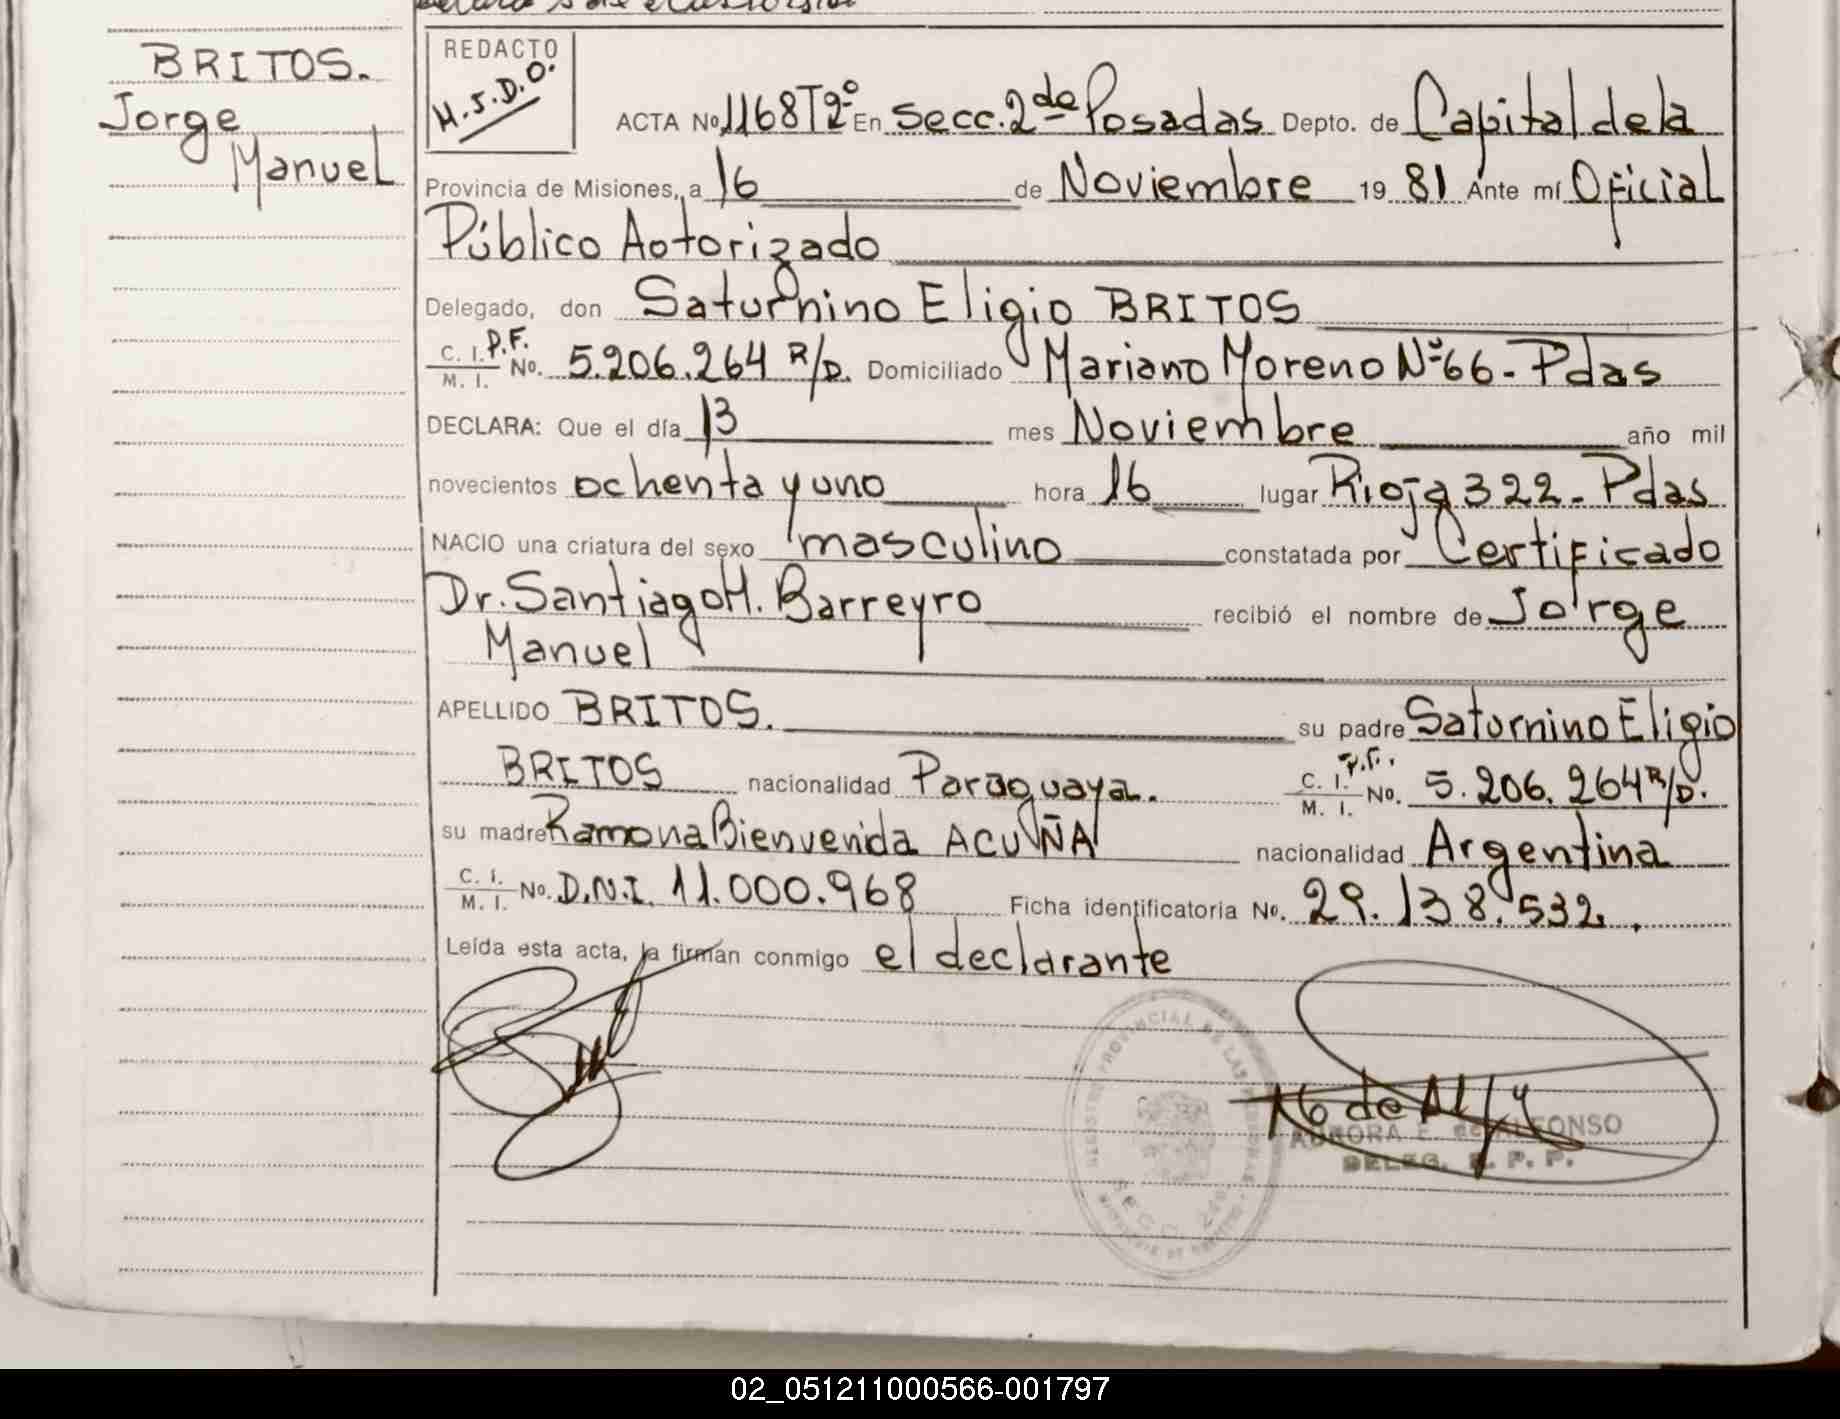 BRITOS.
Jorge
Manuel
REDACTO
H.J.D.O.
ACTA No. 1168 Tº2 En Secc. 2da Posadas Depto. de Capital de la
Provincia de Misiones, a 16 de Noviembre 19 81 Ante mí Oficial
Público Aotorizado
Delegado, don Saturnino Eligio BRITOS
C. I. P.F. M. I. No. 5.206.264 R/D. Domiciliado Mariano Moreno Nº 66 - Pdas
DECLARA: Que el día 13 mes Noviembre año mil
novecientos ochenta y uno hora 16 lugar Rioja 322 - Pdas
NACIO una criatura del sexo masculino constatada por Certificado
Dr. Santiago H. Barreyro recibió el nombre de Jorge
Manuel
APELLIDO BRITOS. su padre Saturnino Eligio
BRITOS nacionalidad Paraguaya. C. I. P.F. M. I. No. 5.206.264 R/D.
su madre Ramona Bienvenida ACUÑA nacionalidad Argentina
C. I. M. I. No. D.N.I. 11.000.968 Ficha identificatoria No. 29.138.532.
Leída esta acta, la firman conmigo el declarante
REGISTRO PROVINCIAL DE LAS PERSONAS
SECC. 2da
AURORA E. de ALFONSO
DELEG. R. P. P.
02_051211000566-001797